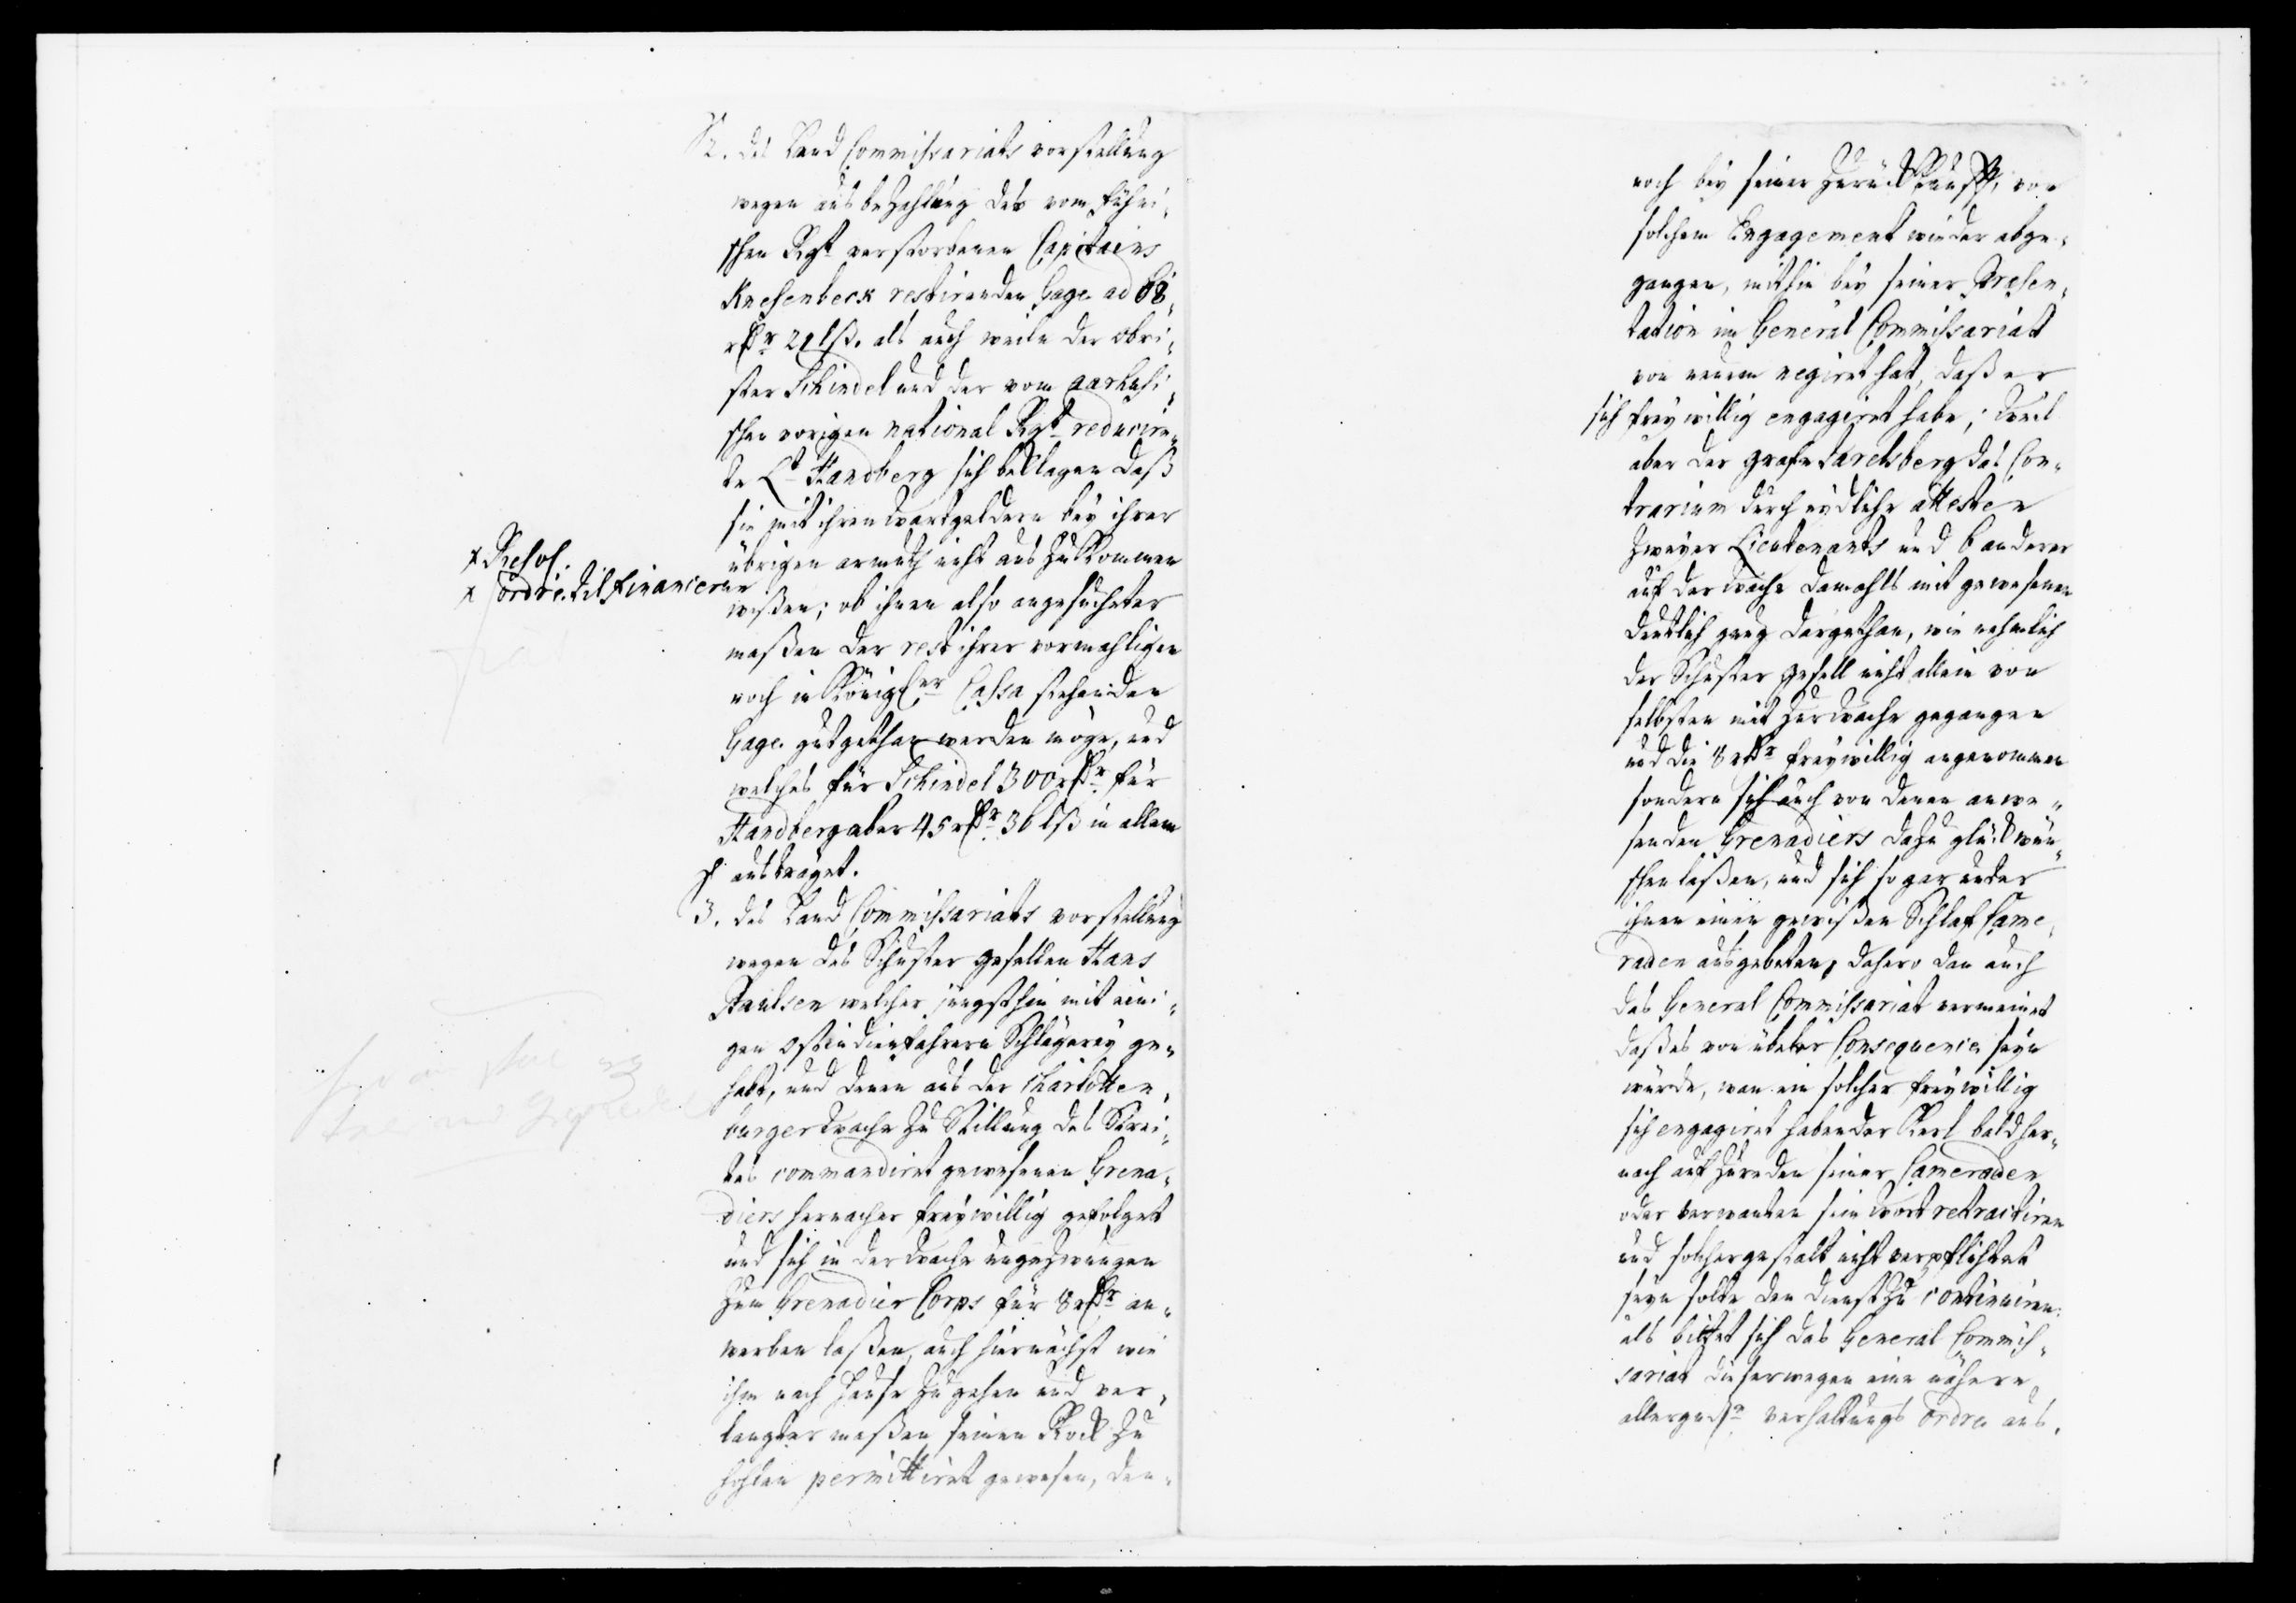 2. des Land Commissariats vorstellung
wegen aus bezahlung des vom Fühni-
schen Rgt verstorbenen Capitains
Knesenbeck restirenden Gage ad 68
rdr 21 lß. als auch weile der Obri-
ster Schindel und der vom aarhusi-
schen vorigen national Rgt reducir-
te Lt Handberg sich beklagen daß
sie mit ihren wartgeldern bey ihrer
übrigen armuth nicht aus zu kommen
wißen; ob ihnen also angesuchter
maßen der rest ihrer vormahligen
noch in Königler Cassa stehenden
Gage gutgethan werden möge, und
welches für Schindel 300 rdr für
Handberg aber 45 rdr 36 lß in allem
austräget.
x Resol.
x ordre til Financerne
3. des Land Commissariats vorstellung
wegen des Schuster gesellen Hans
Paulsen welcher jüngsthin mit eini-
gen Ostindienfahrern Schlägerey ge-
habt, und denen aus der Charlotten-
burger Wache zu Stillung des Strei-
tes commandiret gewesenen Grena-
diers hernacher freywillig gefolget
und sich in der Wache ungezwungen
zum Grenadier Corps für 8 rdr an-
werben laßen, auch hiernächst wie
ihm nach Hause zu gehen und ver-
langter maßen seinen Rock zu
hohlen permittiret gewesen, den-
noch bey seiner Zurückkunfft, von
solchem Engagement wieder abge-
gangen, mithin bey seiner Presen-
tation im General Commissariat
von neuem negiret hat, daß er
sich freywillig engagiret habe; weil
aber der grafe Laresberg das Con-
trarium durch eydliche attesten
zweyer Lieutenants und 6 anderer
auf der wache damahls mit gewesenen
deutlich gnug dargethan, wie nehmlich
der Schuster gesell nicht allein von
selbsten mit zur Wache gegangen
und die 8 rdr freywillig angenommen
sondern sich auch von denen anwe-
senden Grenadiers dazu glückwün-
schen laßen, und sich so gar unter
ihnen einen gewißen Schlaf Came-
raden ausgebeten, dahero dan auch
das General Commissariat vermeinet
daß es von übeler Consequence seyn
würde, wan ein solcher freywillig
sich engagiret habender Kerl bald her-
nach auf zureden seiner Cameraden
oder verwanten sein Wort retractiren
und solchergestalt nicht verpflichtet
seyn solte den dienst zu continuiren:
als bittet sich das General Commis-
sariat dieserwegen eine nähere
allergndste verhaltungs Ordre aus.